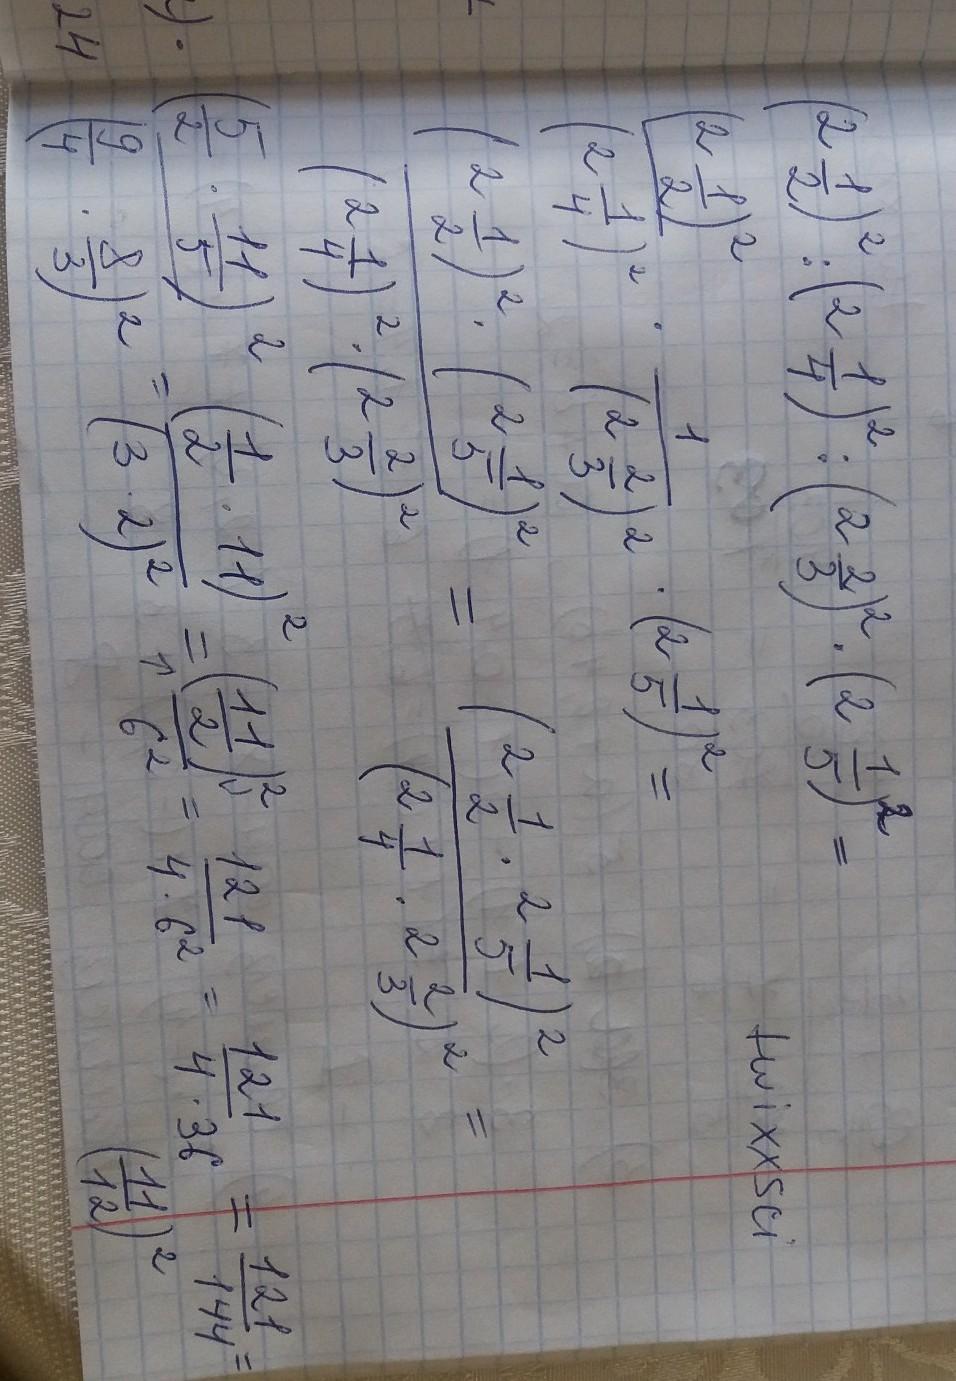 24
(2 1/2)² : (2 1/4)² : (2 2/3)² · (2 1/5)² =
twixxsci
(2 1/2)² / (2 1/4)² · 1 / (2 2/3)² · (2 1/5)² =
(2 1/2)² · (2 1/5)² / (2 1/4)² · (2 2/3)² = (2 1/2 · 2 1/5)² / (2 1/4 · 2 2/3)² =
(5/2 · 11/5)² / (9/4 · 8/3)² = (1/2 · 11)² / (3 · 2)² = (11/2)² / 6² = 121 / 4·6² = 121 / 4·36 = 121/144 =
(11/12)²